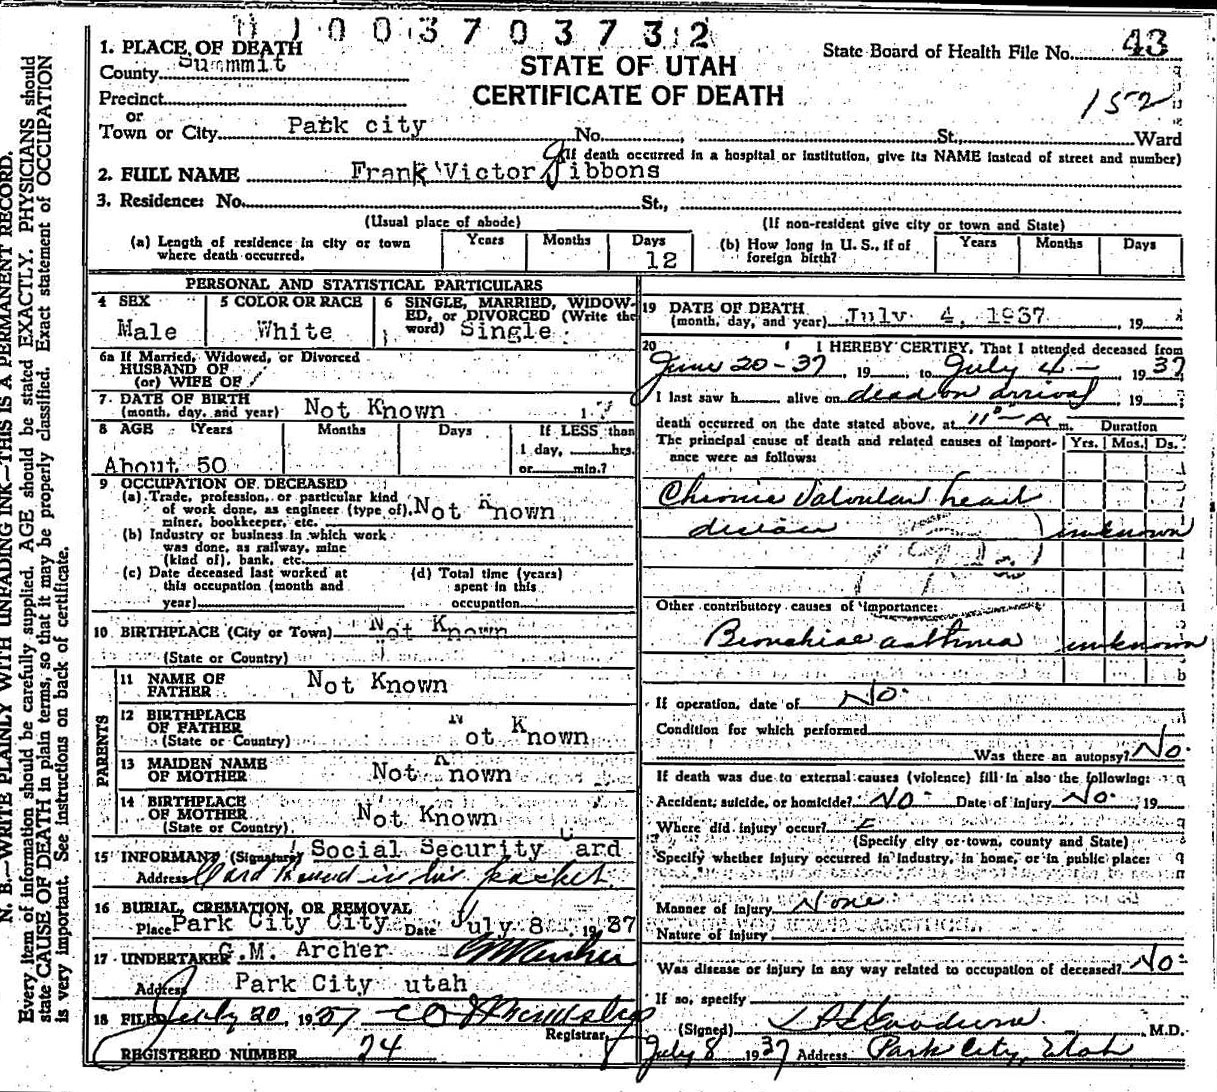 1003703732
1. PLACE OF DEATH
County Summit
STATE OF UTAH
CERTIFICATE OF DEATH
State Board of Health File No. 43
152
Precinct
or
Town or City Park city No. , St., Ward
(If death occurred in a hospital or institution, give its NAME instead of street and number)
2. FULL NAME Frank Victor Gibbons
3. Residence: No. St.,
(Usual place of abode) (If non-resident give city or town and State)
(a) Length of residence in city or town where death occurred. Years Months Days 12
(b) How long in U. S., if of foreign birth? Years Months Days
PERSONAL AND STATISTICAL PARTICULARS
4 SEX Male
5 COLOR OR RACE White
6 SINGLE, MARRIED, WIDOWED, or DIVORCED (Write the word) Single
6a If Married, Widowed, or Divorced
HUSBAND OF
(or) WIFE OF
7 DATE OF BIRTH
(month, day, and year) Not Known
8 AGE Years Months Days If LESS than
1 day, hrs.
or min.?
About 50
9 OCCUPATION OF DECEASED
(a) Trade, profession, or particular kind
of work done, as engineer (type of), Not Known
miner, bookkeeper, etc.
(b) Industry or business in which work
was done, as railway, mine
(kind of), bank, etc.
(c) Date deceased last worked at
this occupation (month and
year)
(d) Total time (years)
spent in this
occupation
10 BIRTHPLACE (City or Town) Not Known
(State or Country)
PARENTS
11 NAME OF
FATHER Not Known
12 BIRTHPLACE
OF FATHER Not Known
(State or Country)
13 MAIDEN NAME
OF MOTHER Not Known
14 BIRTHPLACE
OF MOTHER Not Known
(State or Country)
15 INFORMANT (Signature) Social Security Card
Address Card found in his pocket
16 BURIAL, CREMATION, OR REMOVAL
Place Park City City Date July 8 1937
17 UNDERTAKER C.M. Archer
Address Park City utah
18 FILED July 20, 1937
Registrar
REGISTERED NUMBER 24
19 DATE OF DEATH
(month, day, and year) July 4, 1937 , 19
20 I HEREBY CERTIFY, That I attended deceased from
June 20-37, 19 to July 4- 1937
I last saw h alive on dead on arrival 19
death occurred on the date stated above, at 11 - A m. Duration
The principal cause of death and related causes of importance were as follows: Yrs. Mos. Ds.
Chronic Valvular heart
disease unknown
Other contributory causes of importance:
Bronchial asthma unknown
If operation, date of No.
Condition for which performed
Was there an autopsy? No.
If death was due to external causes (violence) fill in also the following:
Accident, suicide, or homicide? No. Date of injury No. , 19
Where did injury occur?
(Specify city or town, county and State)
Specify whether injury occurred in industry, in home, or in public place:
Manner of injury None
Nature of injury
Was disease or injury in any way related to occupation of deceased? No.
If so, specify
(Signed) M.D.
July 8 1937 Address Park City, Utah
N. B.—WRITE PLAINLY WITH UNFADING INK—THIS IS A PERMANENT RECORD.
Every item of information should be carefully supplied. AGE should be stated EXACTLY. PHYSICIANS should
state CAUSE OF DEATH in plain terms, so that it may be properly classified. Exact statement of OCCUPATION
is very important. See instructions on back of certificate.